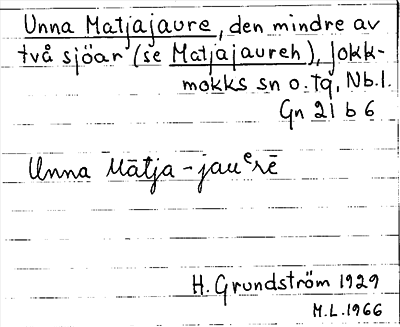 Unna Matjajaure, den mindre av
två sjöar (se Matjajaureh), Jokk-
mokks sn o. tg, Nb.l.
Gn 21 b 6
Unna Mātja-jauᵉrē
H. Grundström 1929
M.L. 1966